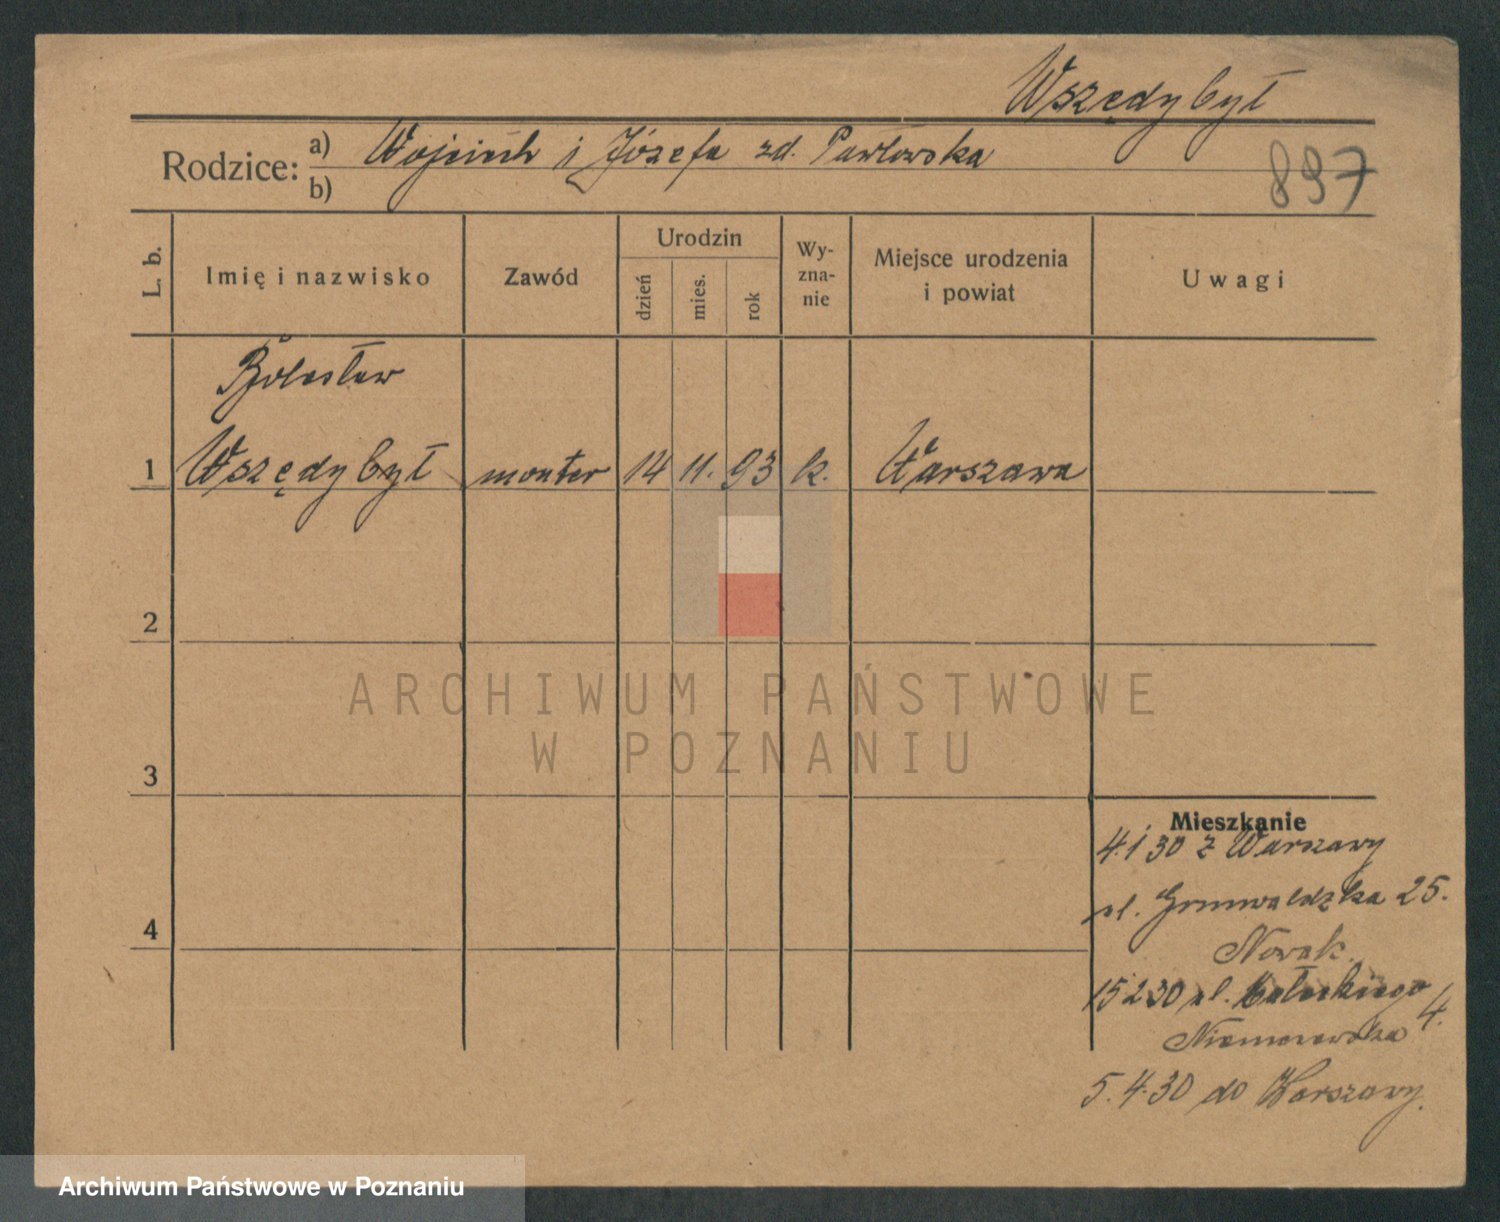 Wszędybył
Rodzice: a) Wojciech i Józefa zd. Pawłowska
b)
897
L. b. Imię i nazwisko Zawód Urodzin dzień mies. rok Wy-zna-nie Miejsce urodzenia i powiat Uwagi
Bolesław
1 Wszędybył monter 14 11. 93 k. Warszawa
2
ARCHIWUM PAŃSTWOWE
W POZNANIU
3
Mieszkanie
4.1 30 z Warszawy
ul. Grunwaldzka 25.
4
Nowak.
15 2 30 ul. Małeckiego 4.
5. 4. 30 do Warszawy.
Archiwum Państwowe w Poznaniu